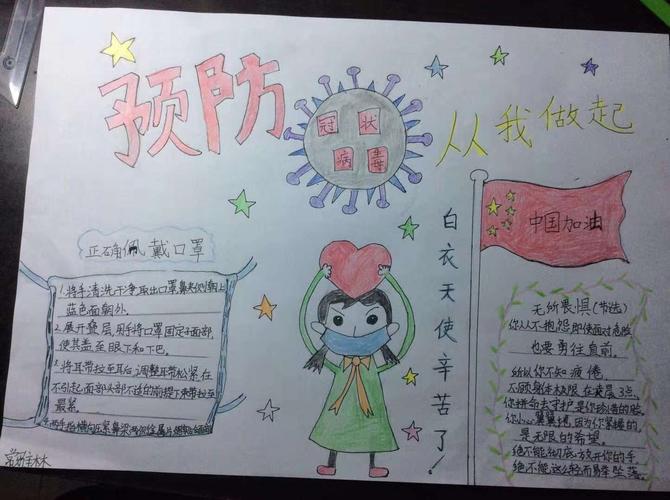 预防
冠状
病毒
从我做起
中国加油
白衣天使辛苦了!
正确佩戴口罩
1.将手清洗干净取出口罩鼻夹侧朝上
蓝色面朝外。
2.展开叠层,用手将口罩固定于面部,
使其盖至眼下和下巴。
3.将耳带拉至耳后,调整耳带松紧在
不引起面部头部不适的前提下来带拉至
最紧。
无所畏惧(节选)
你从不抱怨即使面对危险
也要勇往直前。
所以你不知疲倦。
不顾身体极限在凌晨3点。
你拼命去守护是你珍惜的脸。
你小心翼翼地,因为你紧握的
是无限的希望。
绝不能彻底放开你的手
绝不能这么轻而易举坠落。